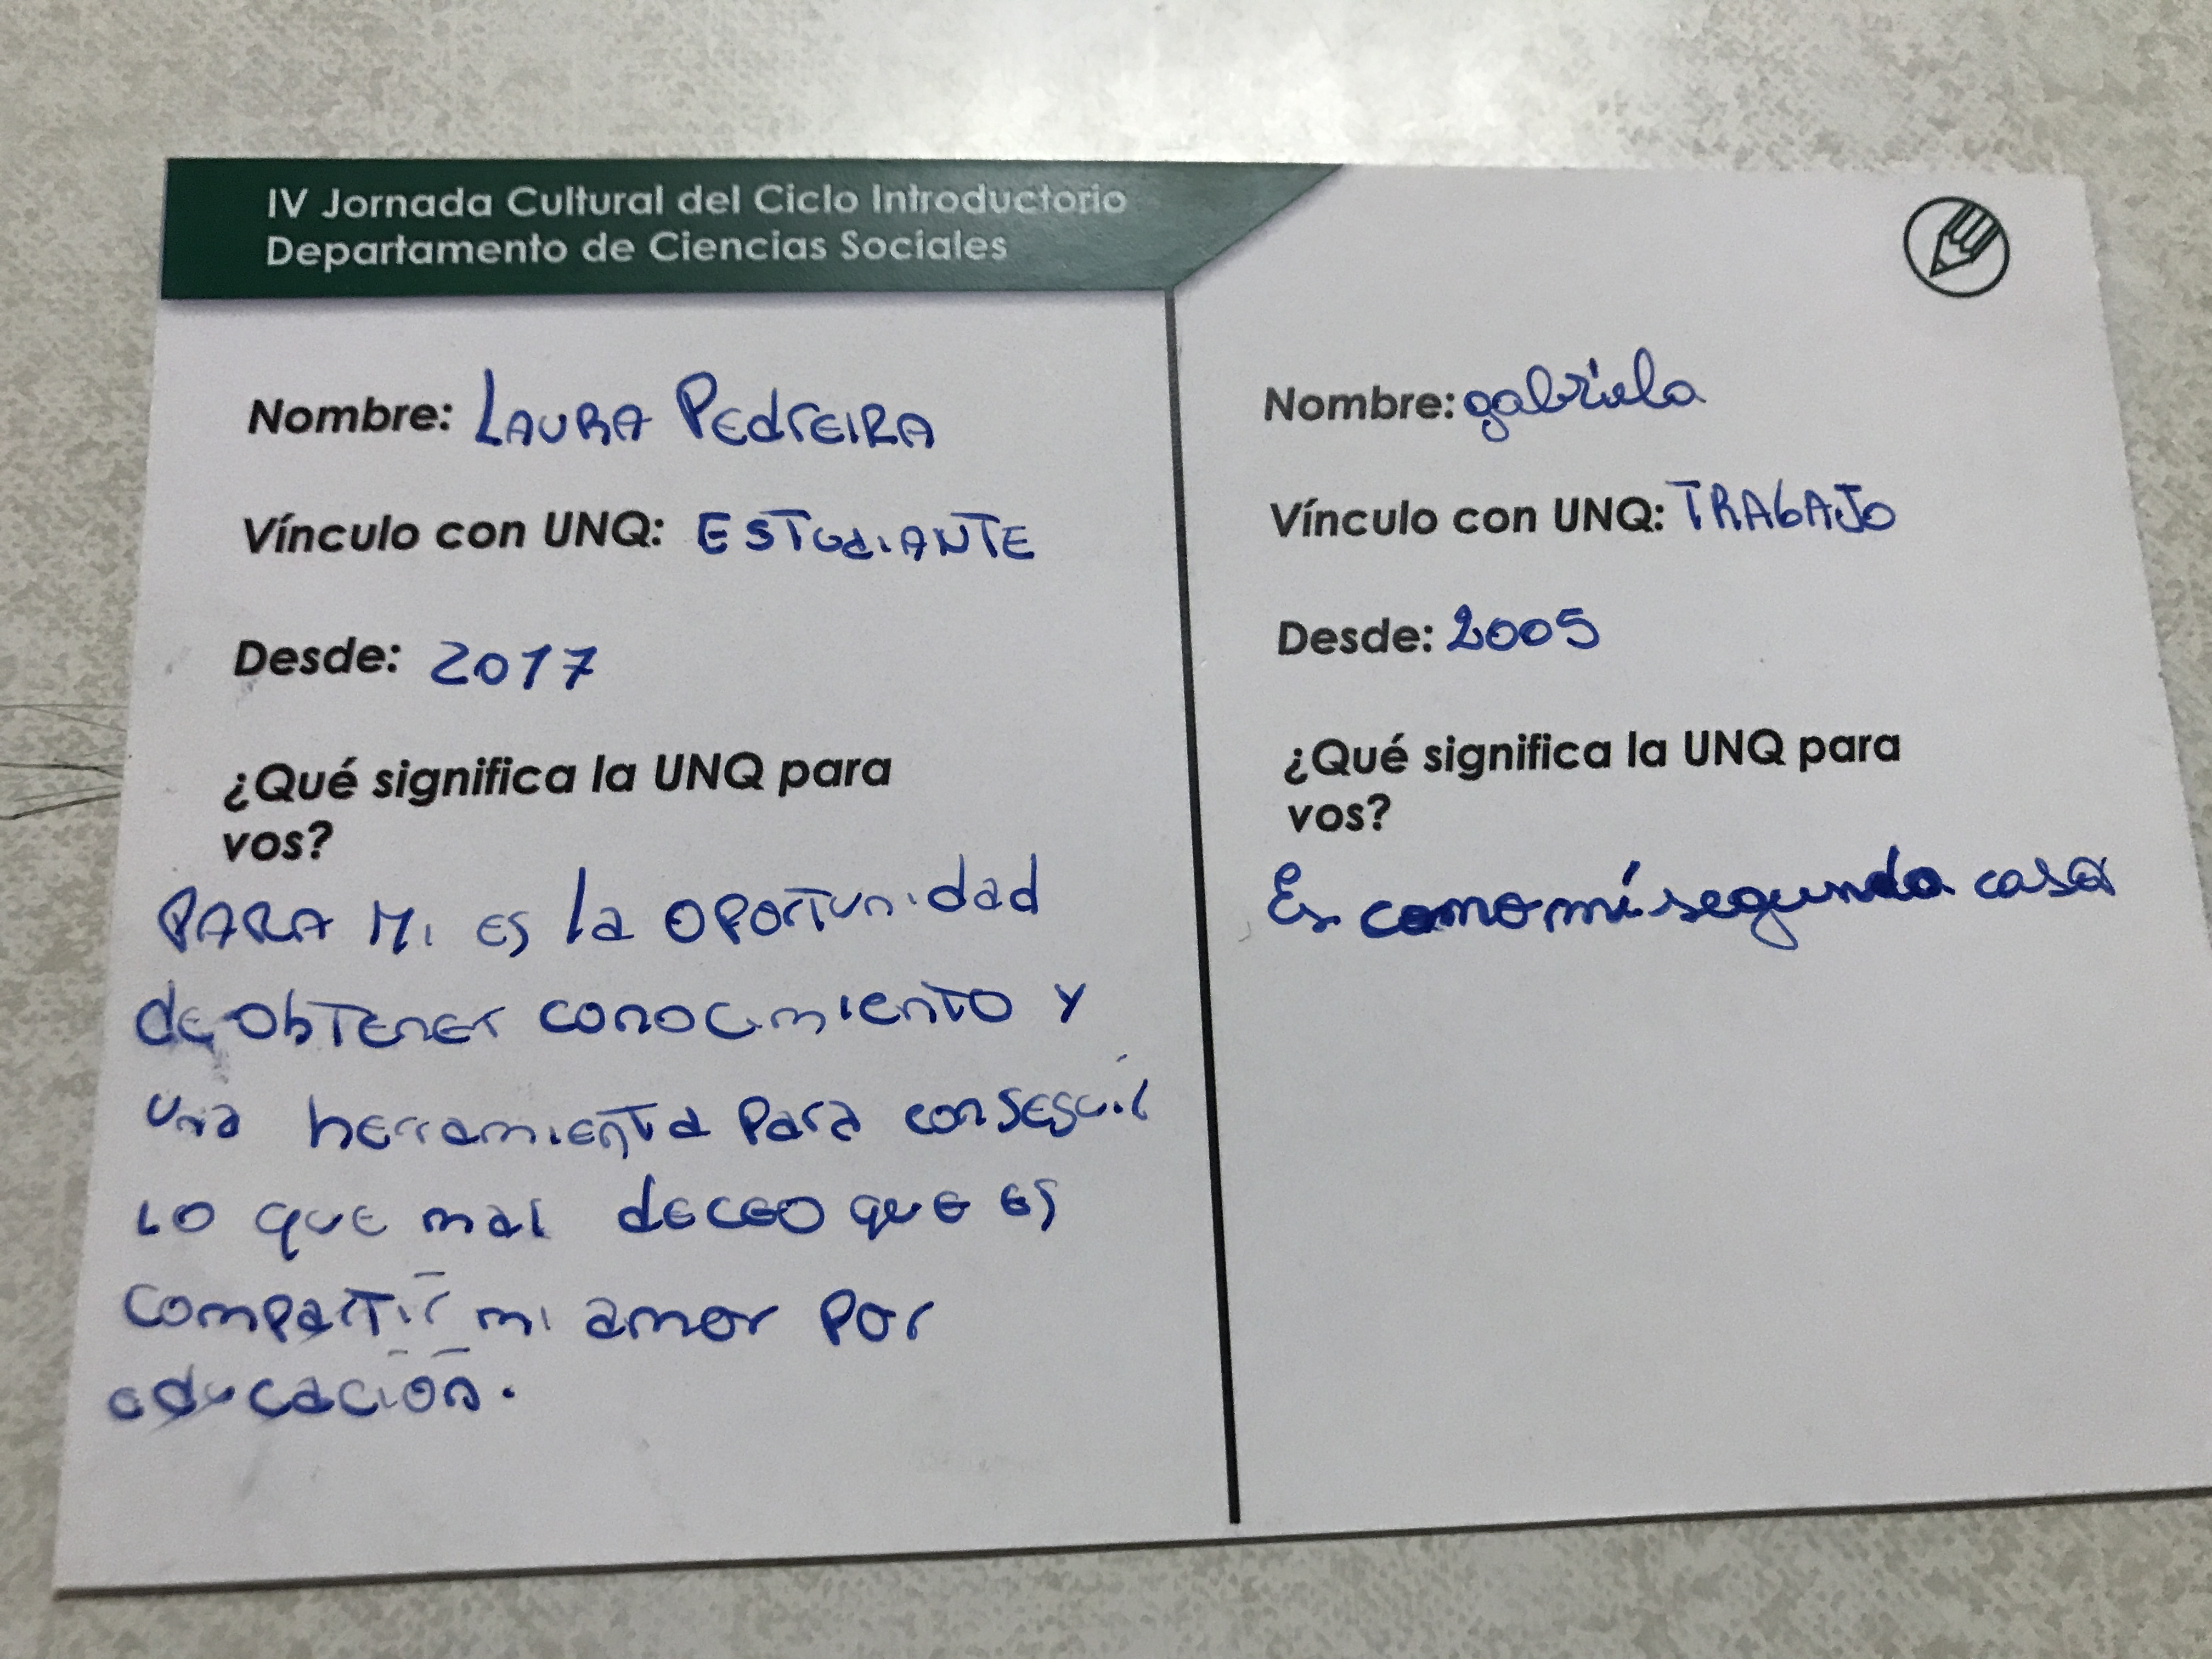 IV Jornada Cultural del Ciclo Introductorio
Departamento de Ciencias Sociales
Nombre: LAURA PEdrEIRA
Vínculo con UNQ: ESTUdiANTE
Desde: 2017
¿Qué significa la UNQ para
vos?
PARA Mi es la oportunidad
de obtener conocimiento y
una herramienta para conseguir
lo que mas deceo que es
compartir mi amor por
educación.
Nombre: gabriela
Vínculo con UNQ: TRAbAJO
Desde: 2005
¿Qué significa la UNQ para
vos?
Es como mi segunda casa